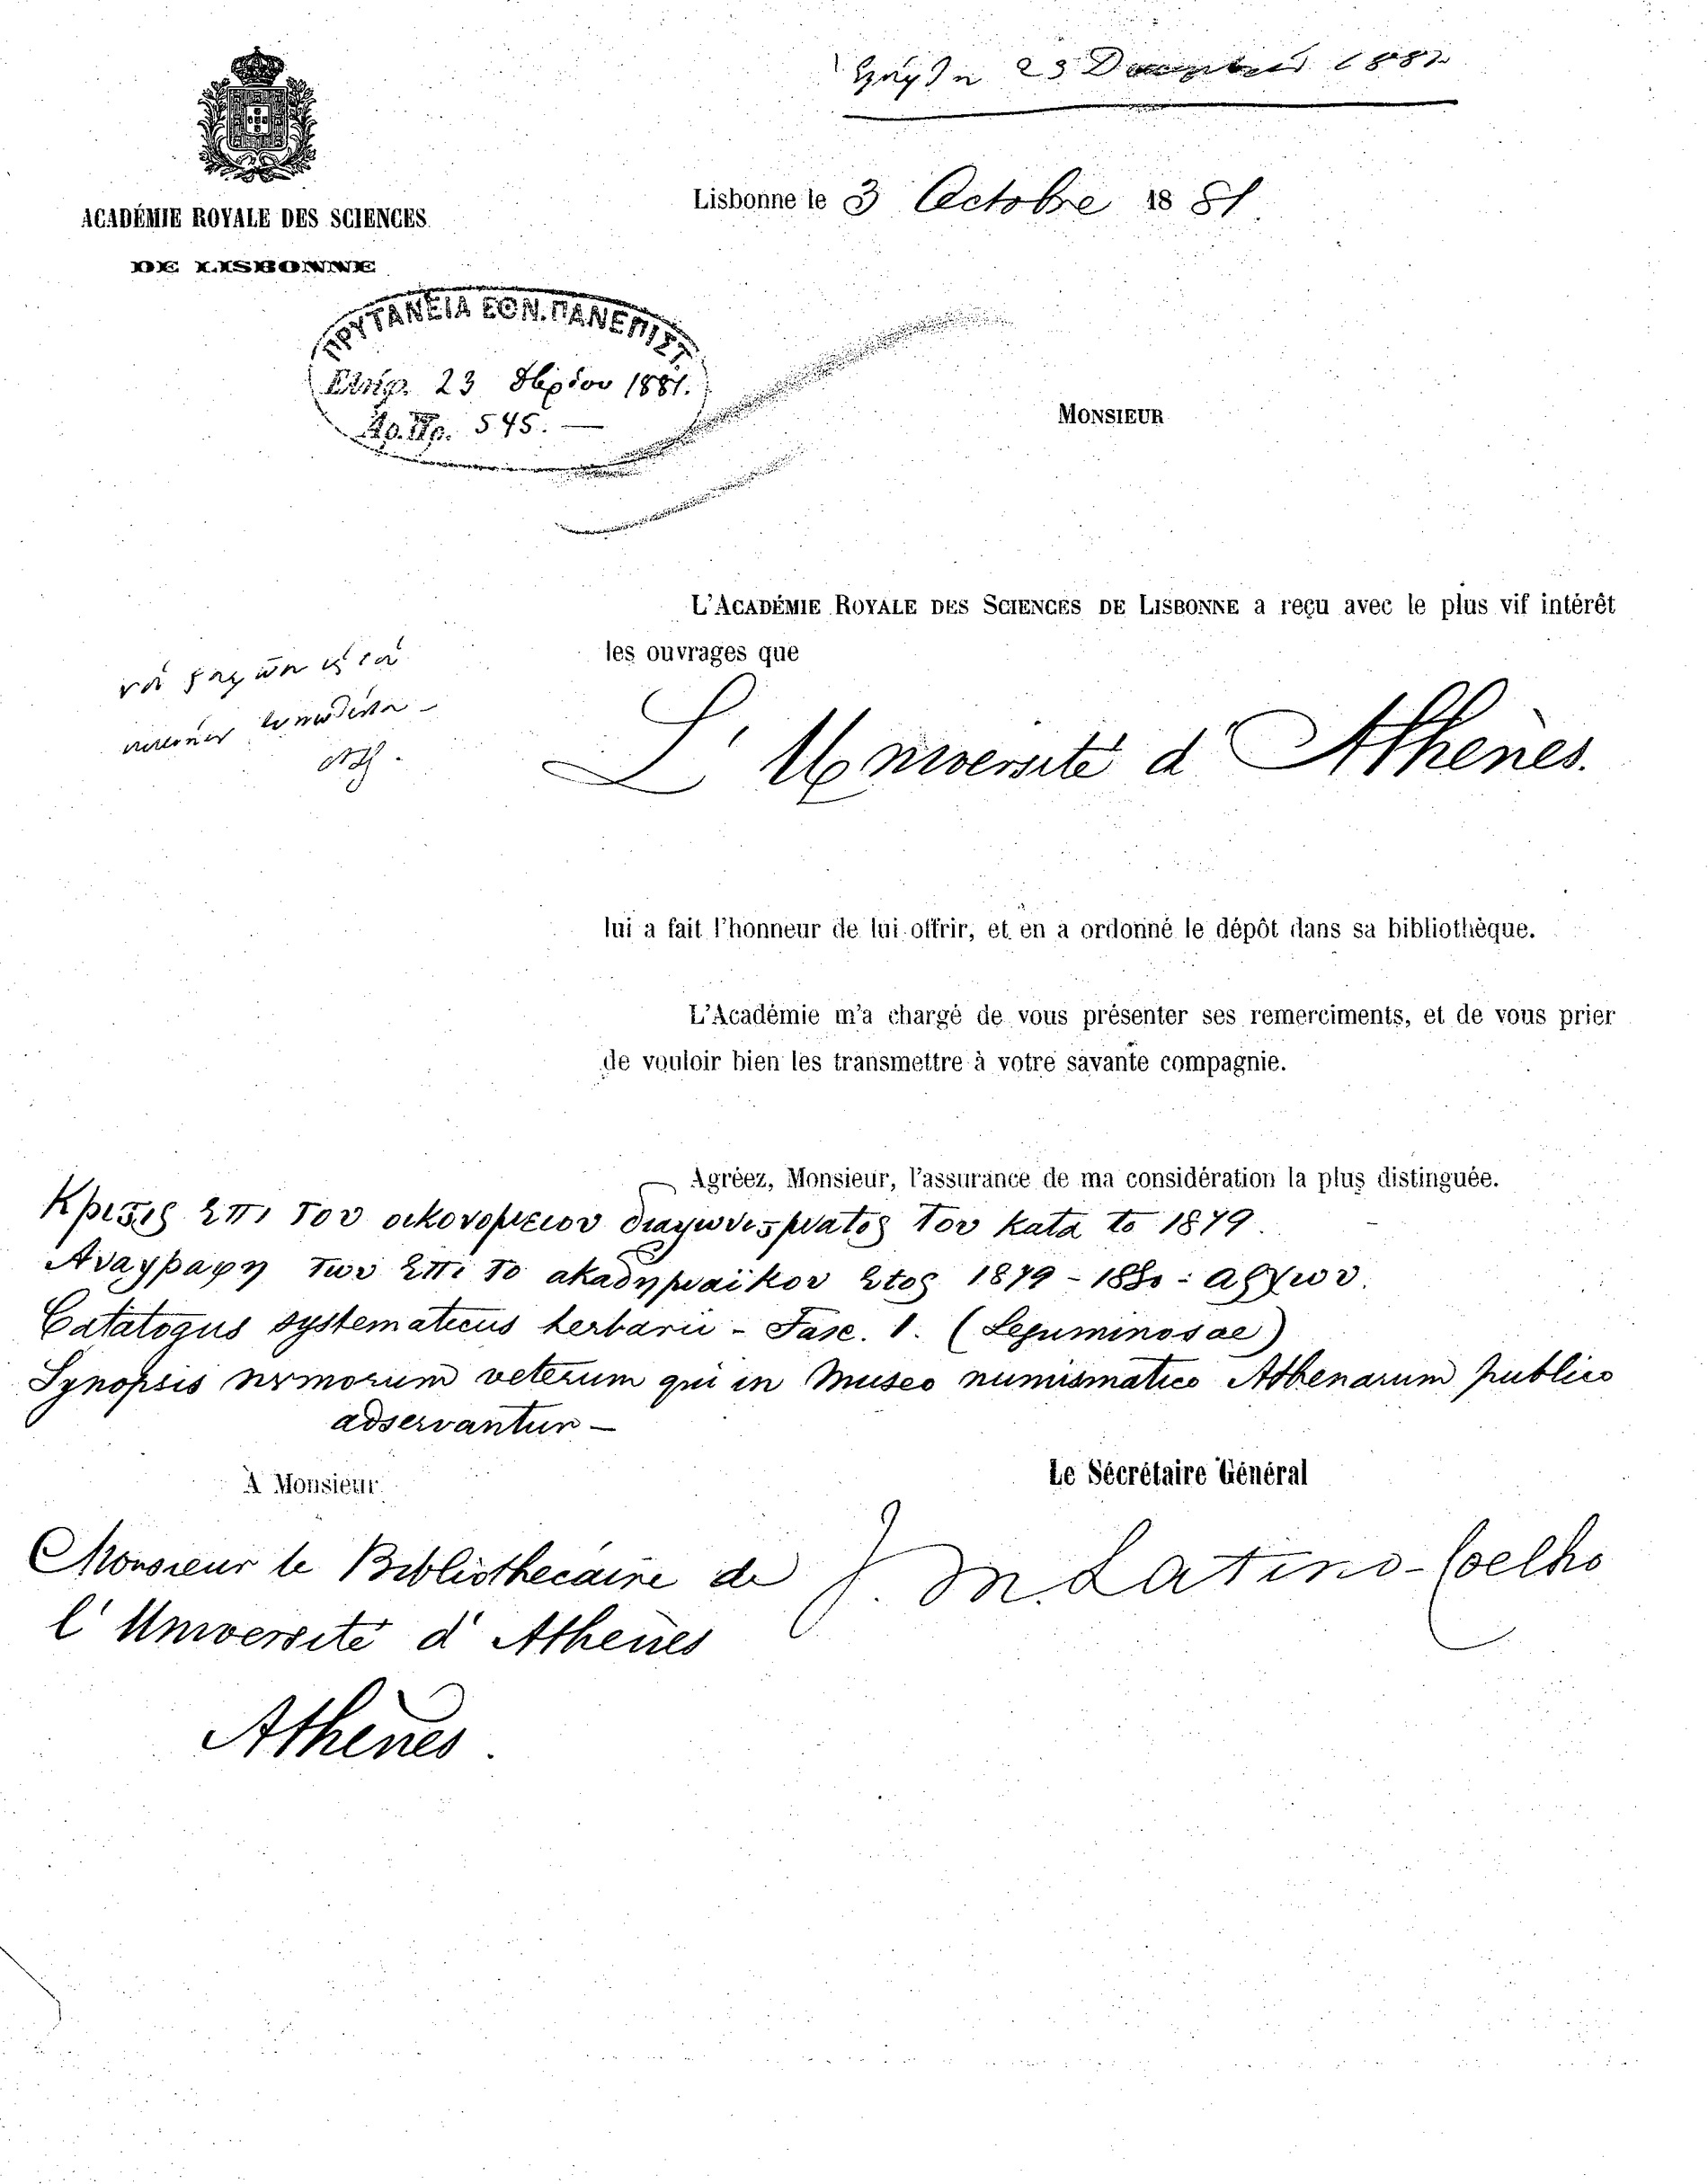 23 1881
ACADÉMIE ROYALE DES SCIENCES
DE LISBONNE
Lisbonne le 3 Octobre 1881
ΠΡΥΤΑΝΕΙΑ ΕΘΝ. ΠΑΝΕΠΙΣΤ.
Ἐλήφ. 23 8βρίου 1881.
Ἀρ. Πρ. 545. —
MONSIEUR
L'ACADÉMIE ROYALE DES SCIENCES DE LISBONNE a reçu avec le plus vif intérêt
les ouvrages que
L'Université d'Athènes.
lui a fait l'honneur de lui offrir, et en a ordonné le dépôt dans sa bibliothèque.
L'Académie m'a chargé de vous présenter ses remerciments, et de vous prier
de vouloir bien les transmettre à votre savante compagnie.
Agréez, Monsieur, l'assurance de ma considération la plus distinguée.
Κρισις επι του οικονομειου διαγωνισματος του κατα το 1879.
Αναγραφη των επι το ακαδημαϊκον ετος 1879-1880 = αρχων.
Catalogus systematicus herbarii - Fasc. 1. (Leguminosae)
Synopsis numorum veterum qui in Museo numismatico Athenarum publico
adservantur —
À Monsieur
Le Sécrétaire Général
Monsieur le Bibliothecaire de
J. M. Latino-Coelho
l'Université d'Athènes
Athènes.